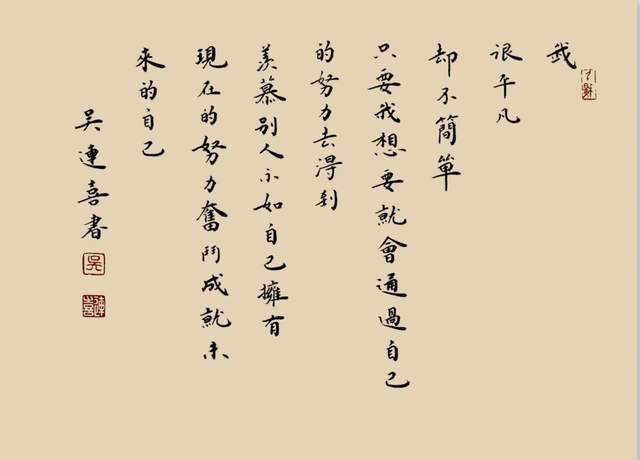 我
很平凡
却不簡單
只要我想要就會通過自己
的努力去得到
羨慕别人不如自己擁有
現在的努力奮鬥成就未
來的自己
吳連喜書
吳
連喜